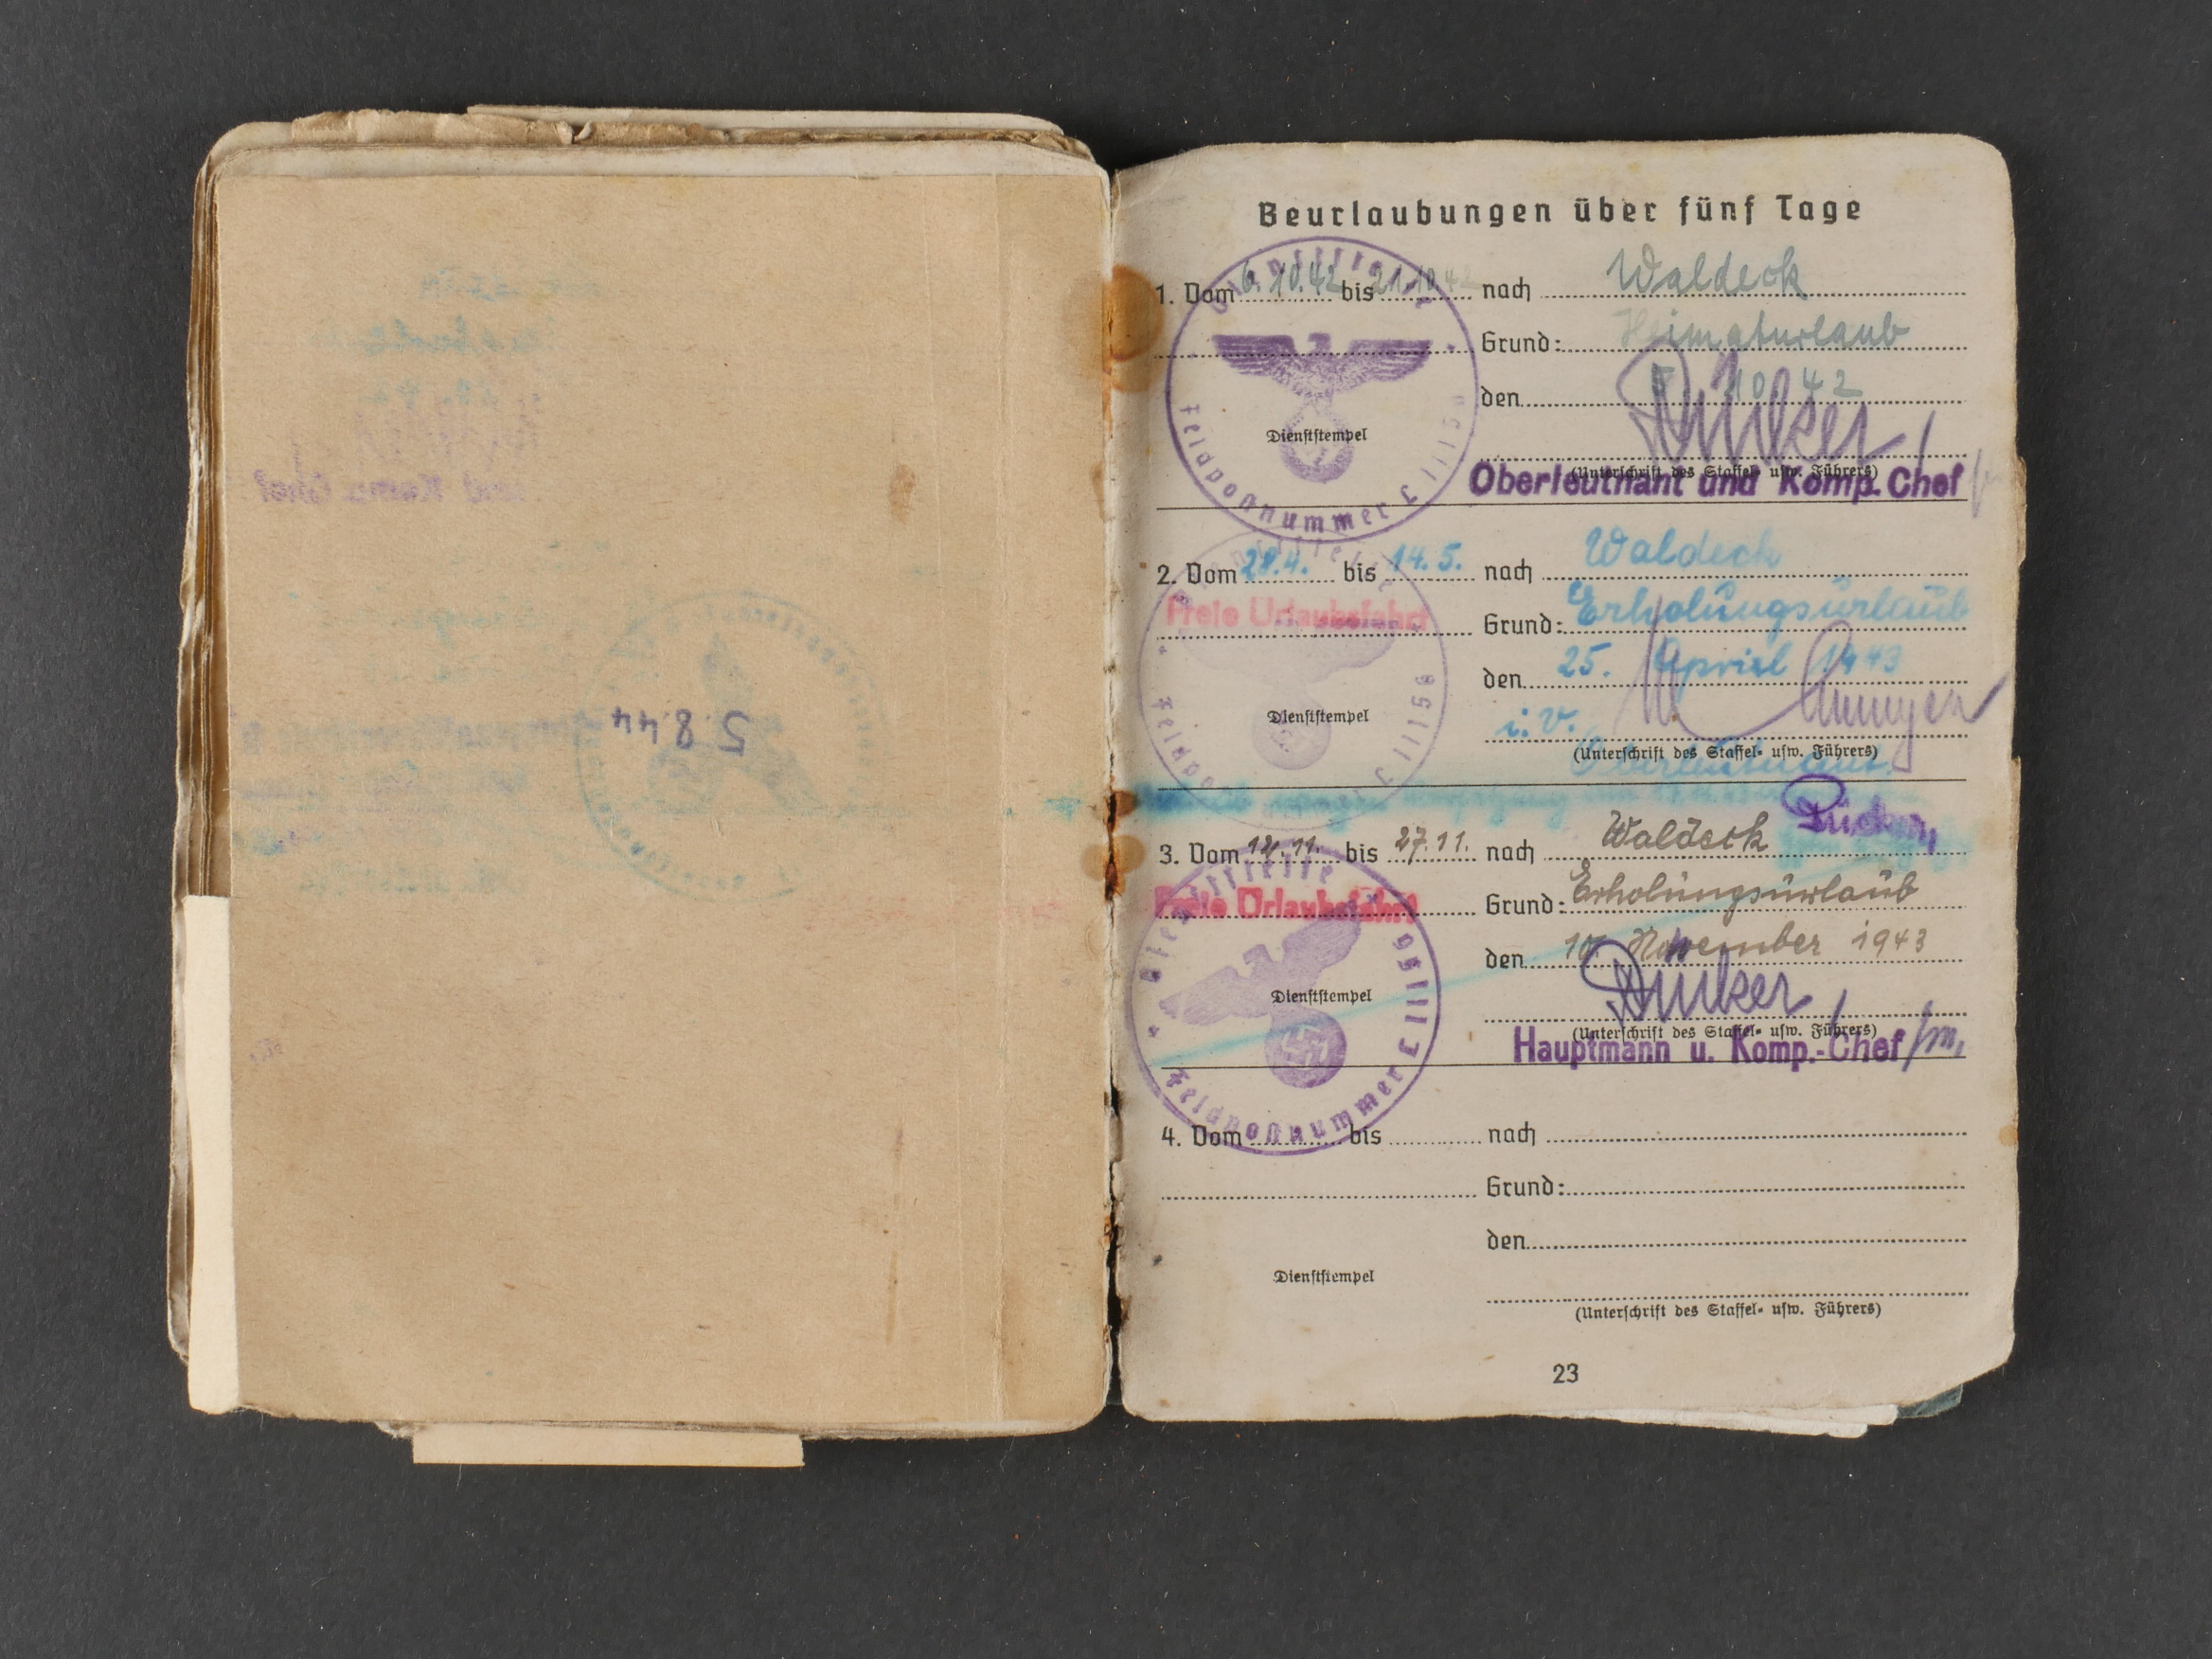 5.8.44
Beurlaubungen über fünf Tage
1. Vom 6.10.42 bis 21.10.42 nach Waldeck
Grund: Heimaturlaub
den 10 42
Dienststempel
(Unterschrift des Staffel- usw. Führers)
Oberleutnant und Komp. Chef
Dienststelle
Feldpostnummer L 11156
2. Vom 28.4. bis 14.5. nach Waldeck
Freie Urlaubsfahrt
Grund: Erholungsurlaub
den 25. April 1943
Dienststempel
i.V.
(Unterschrift des Staffel- usw. Führers)
Oberleutnant
Feldpo L 11156
3. Vom 12.11. bis 27.11. nach Waldeck
Freie Urlaubsfahrt
Grund: Erholungsurlaub
den 10. November 1943
Dienststempel
(Unterschrift des Staffel- usw. Führers)
Hauptmann u. Komp.-Chef
Dienststelle
Feldpostnummer L 11156
4. Vom bis nach
Grund:
den
Dienststempel
(Unterschrift des Staffel- usw. Führers)
23